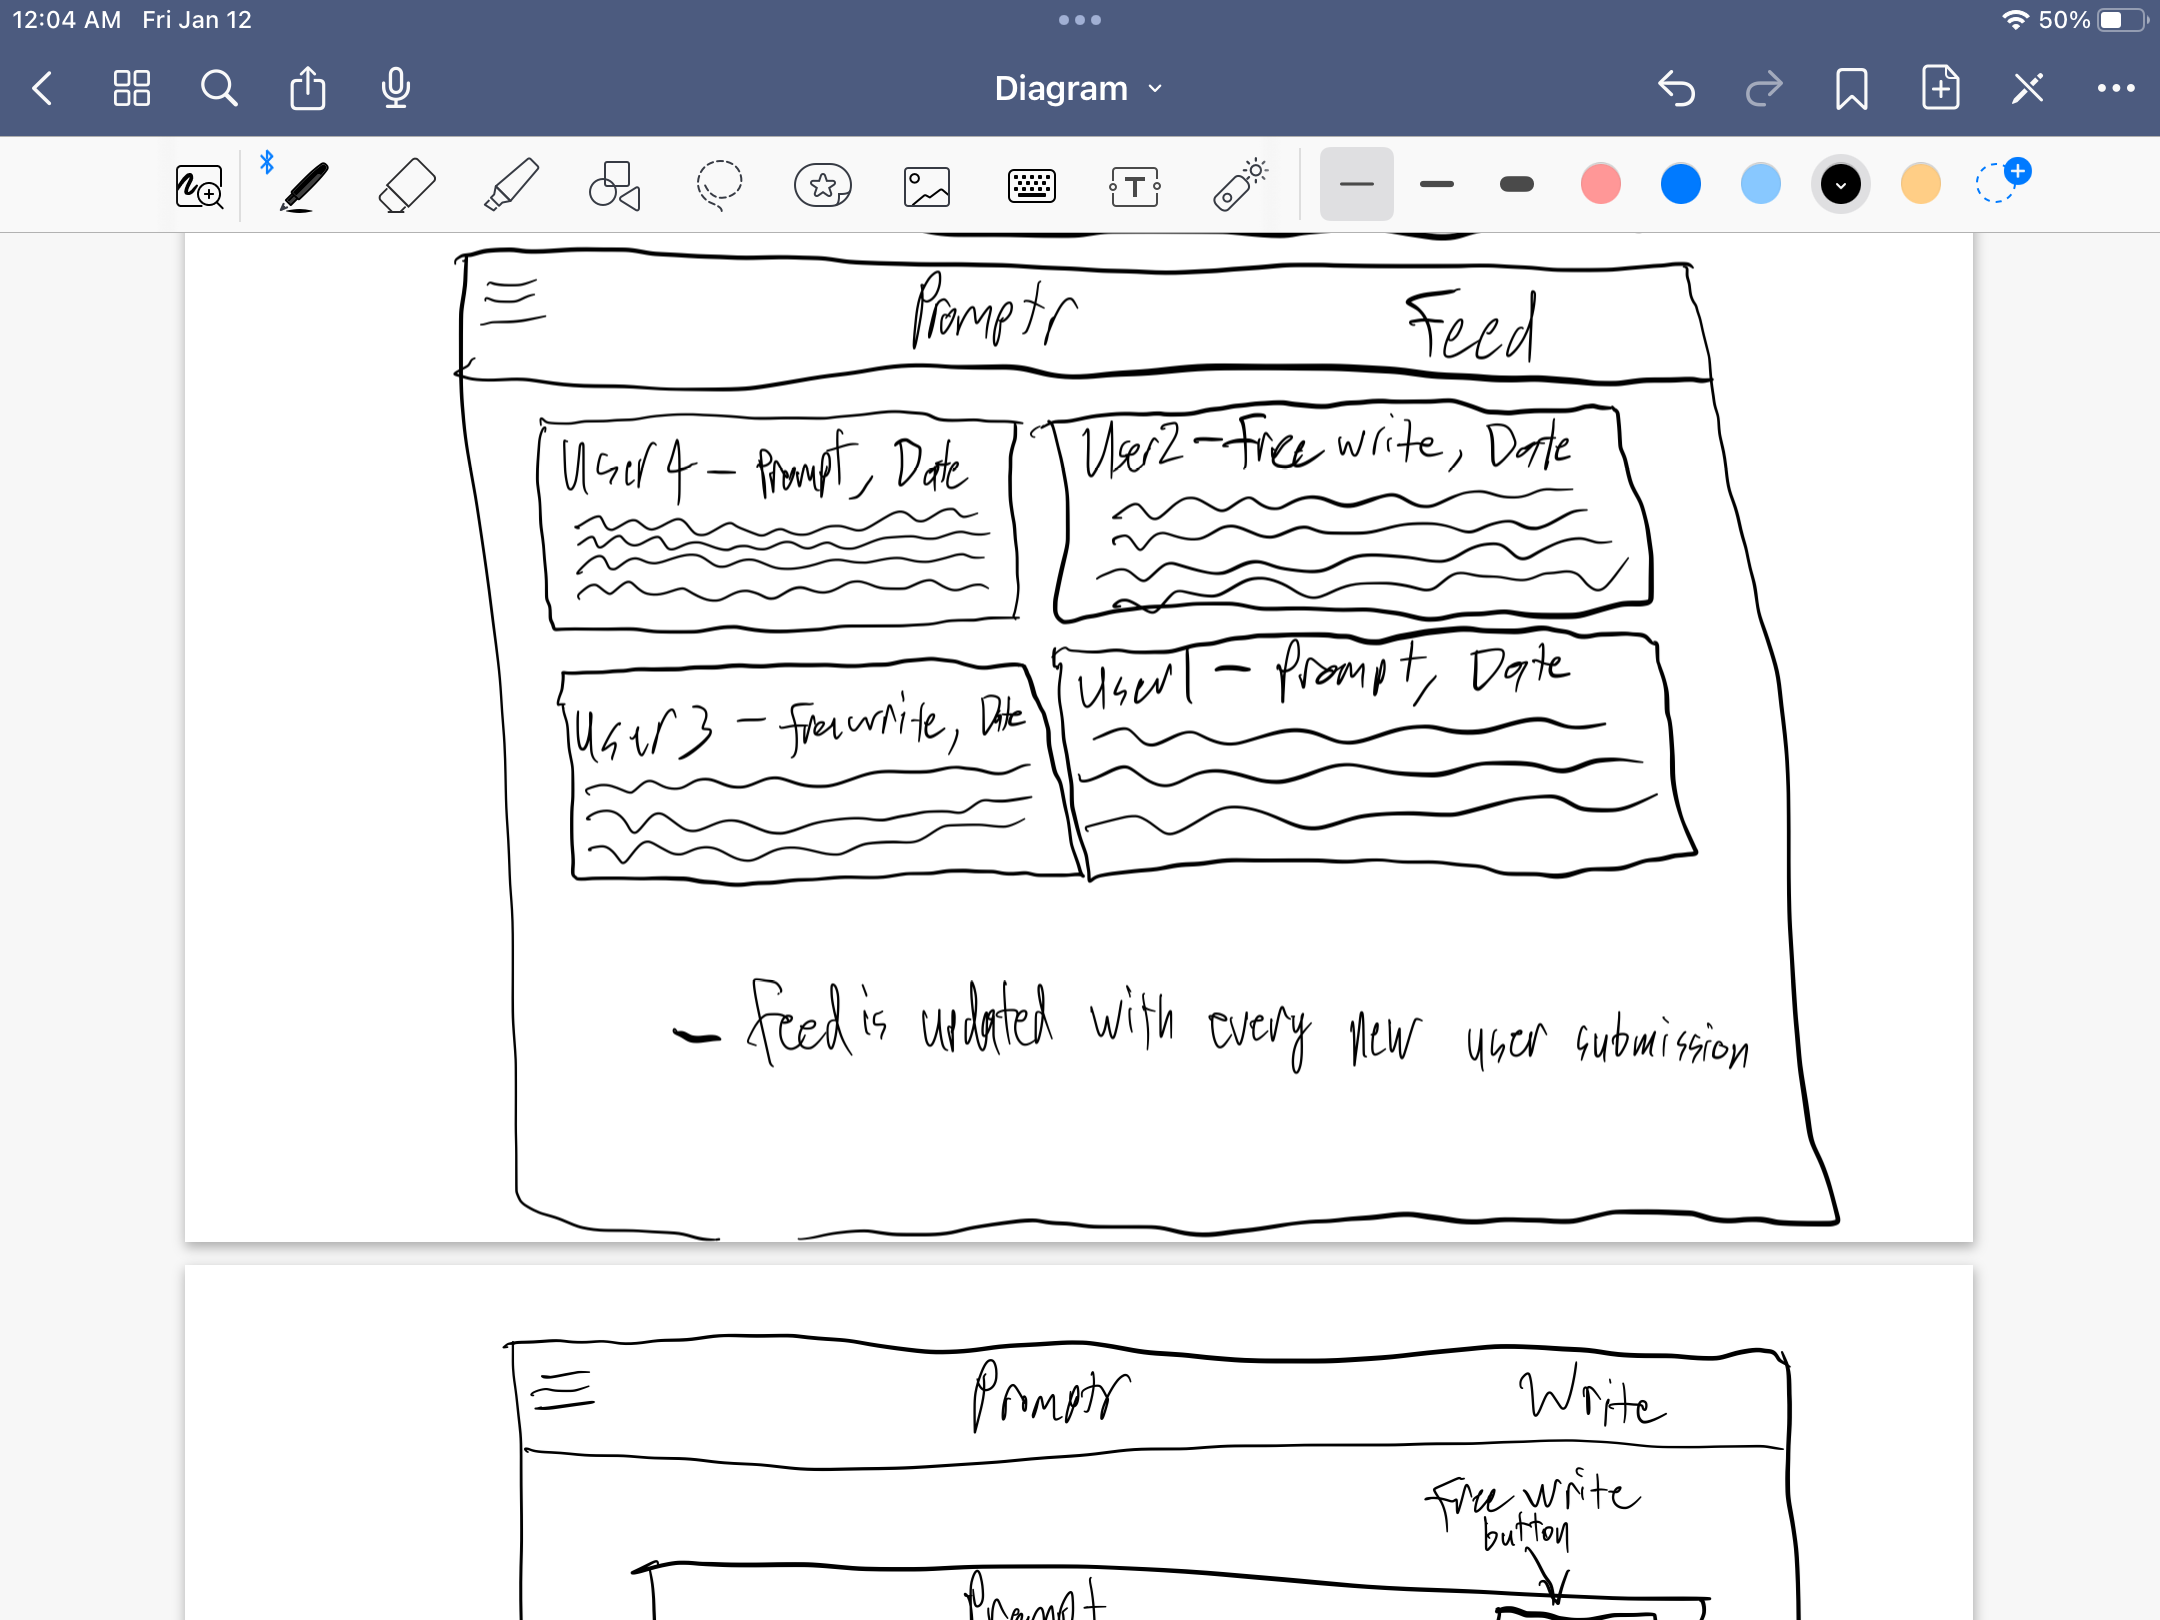 12:04 AM Fri Jan 12
50%
Diagram
T
Promptr Feed
User 4 - Prompt, Date
User2 - Free write, Date
User 3 - freewrite, Date
User 1 - Prompt, Date
- Feed is updated with every new user submission
Promptr Write
Free write
button
Prompt